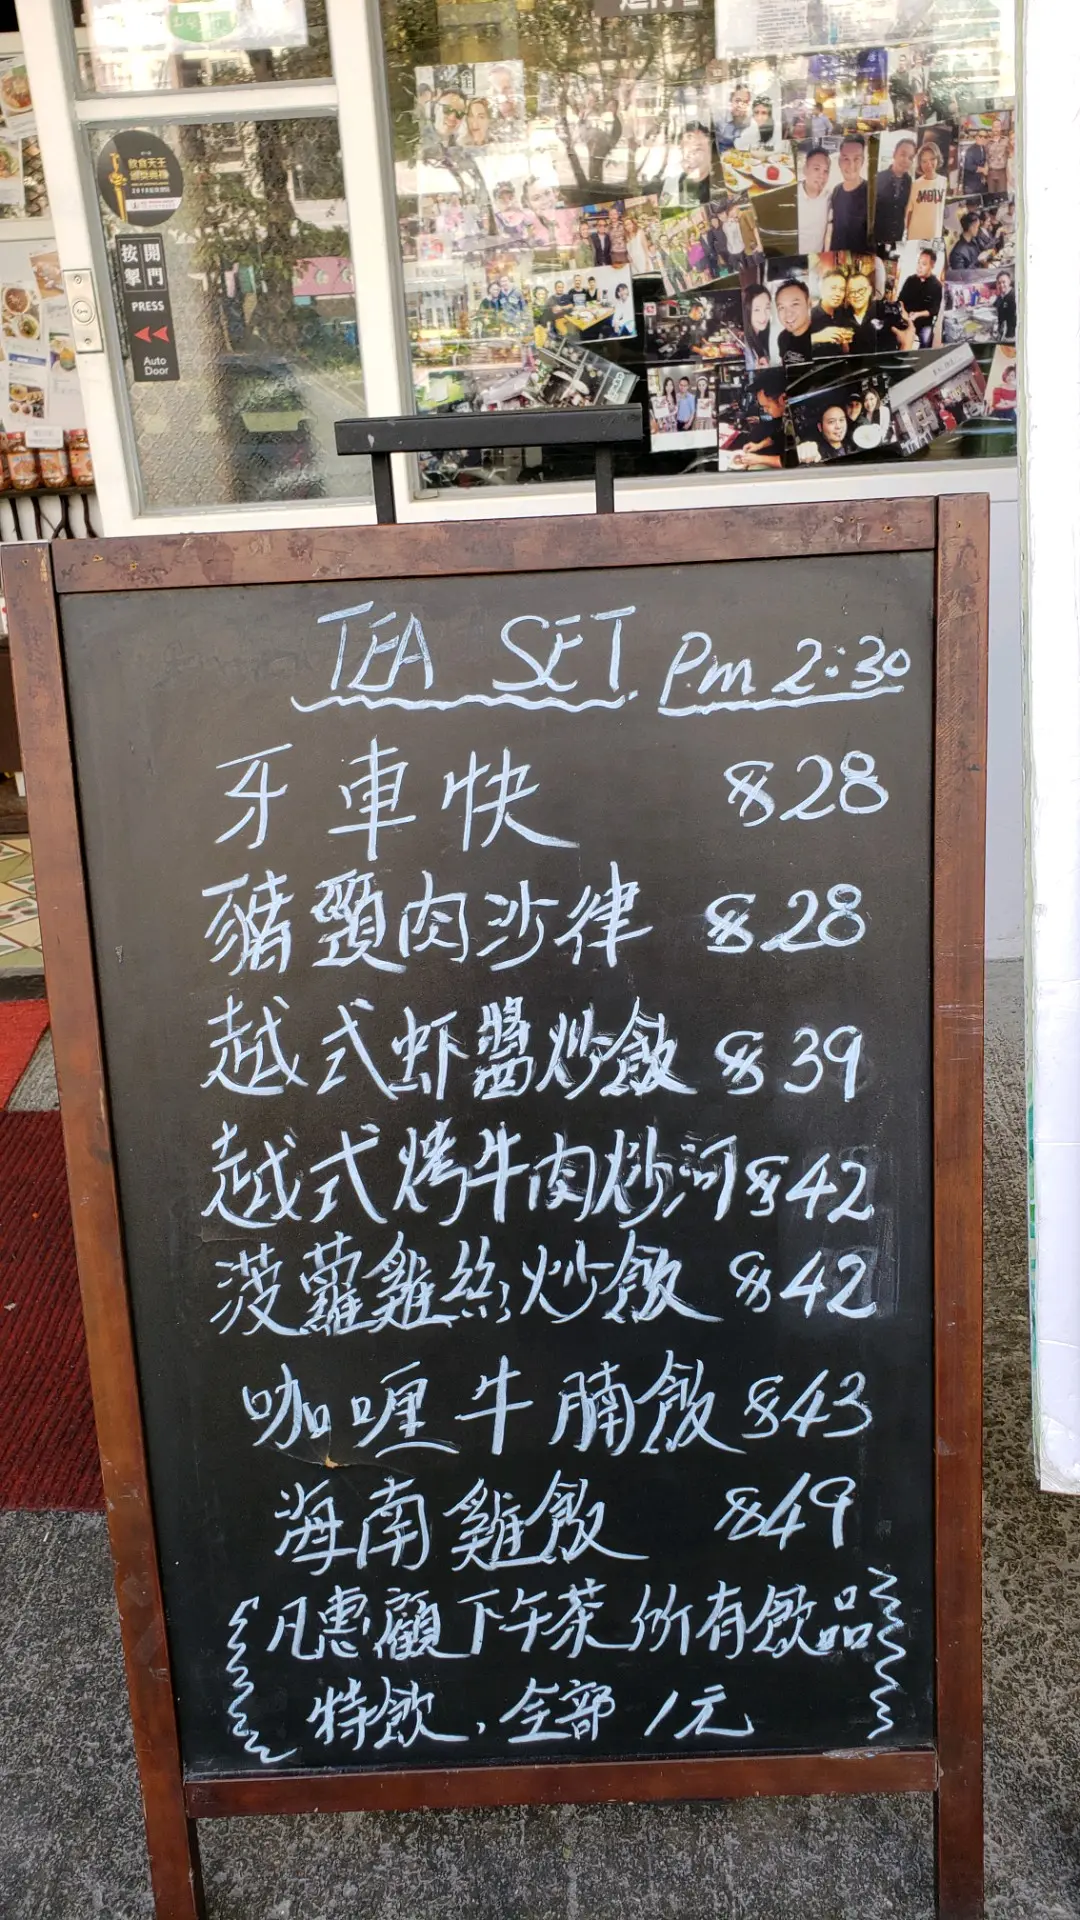 飲食天王
2018
按掣
開門
PRESS
Auto
Door
MOLY
TEA SET Pm 2:30
牙車快 $28
豬頸肉沙律 $28
越式虾醬炒飯 $39
越式烤牛肉炒河 $42
菠蘿雞絲炒飯 $42
咖喱牛腩飯 $43
海南雞飯 $49
凡惠顧下午茶所有飲品
特飲，全部1元